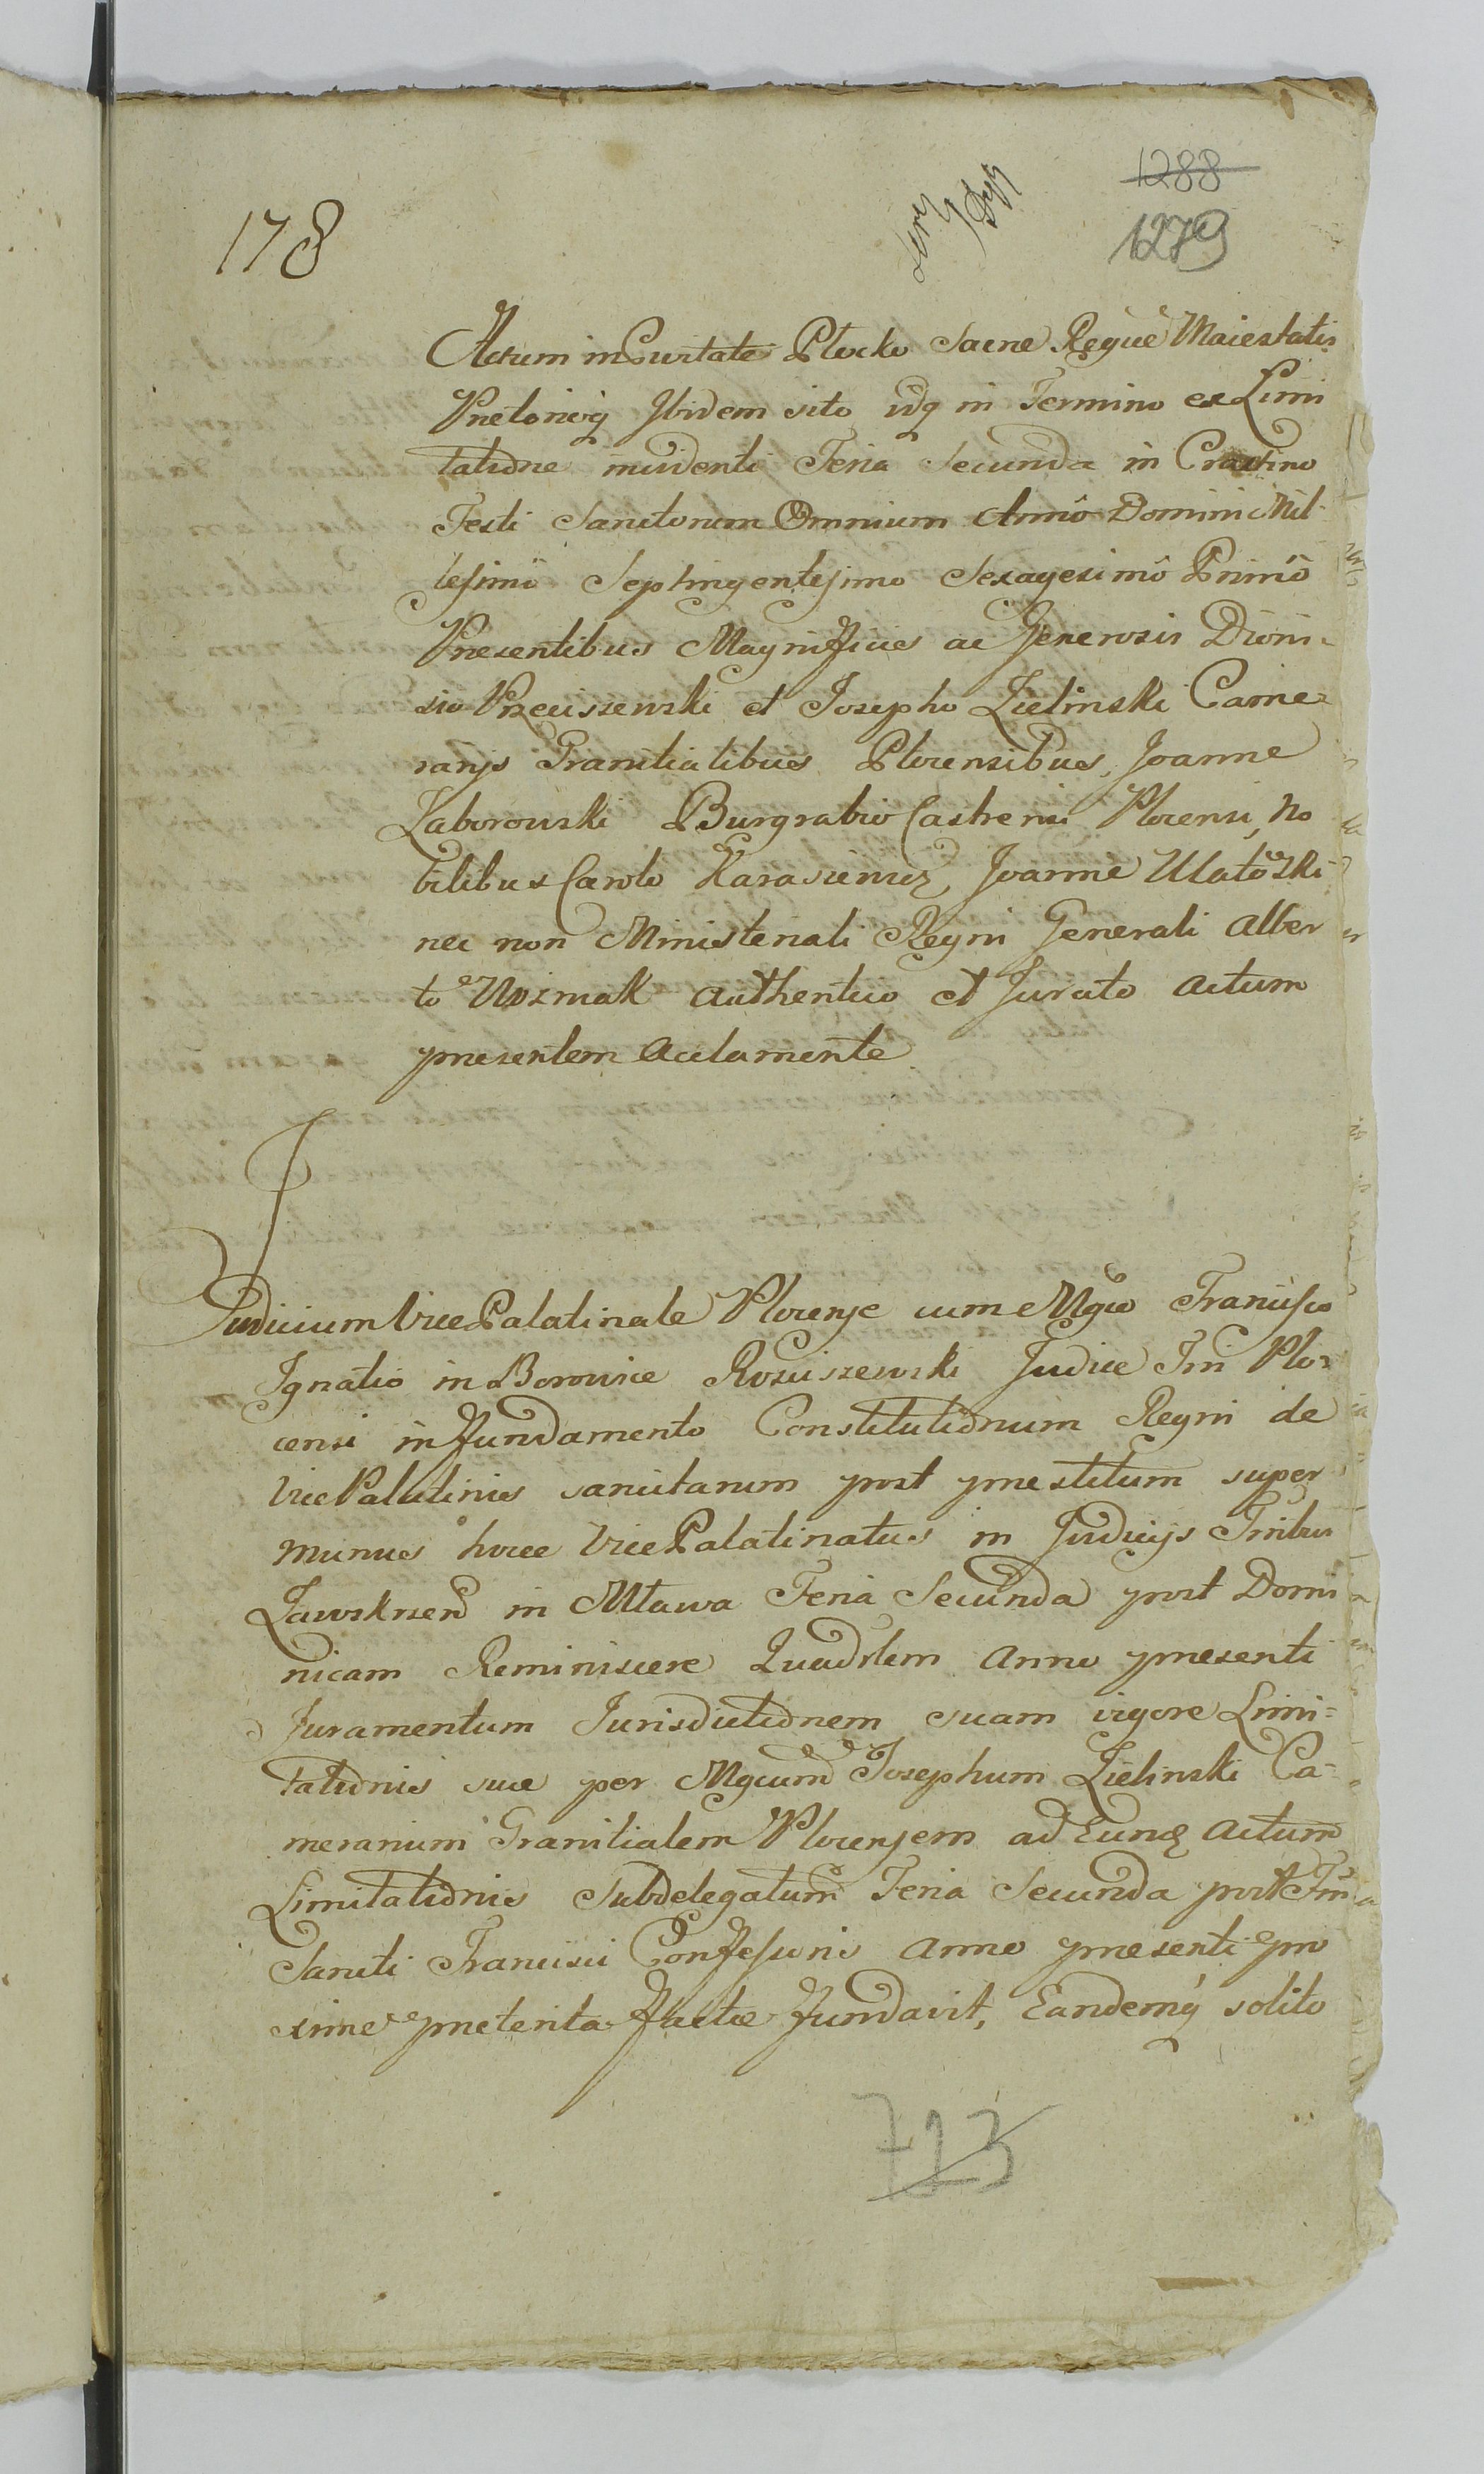 1288
178
1279
Actum in Civitate Plocko Sacræ Regiæ Maiestatis
Prætorioq Ibidem sito idq in Termino ex Limi
tatione incidenti Feria Secunda in Crastino
Festi Sanctorum Omnium Anno Domini Mil-
lesimo Septingentesimo Sexagesimo Primo
Præsentibus Magnificis ac Generosis Dioni-
sio Przeciszewski et Josepho Zielinski Came-
rarijs Granitialibus Plocensibus, Joanne
Zaborowski Burgrabio Castrensi Plocensi, No
bilibus Carolo Karasiewicz, Joanne Ulatowski
nec non Ministeriali Regni Generali Alber
to Woźniak Authentico et Jurato Actum
præsentem Acclamante
Judicium Vice Palatinale Plocense cum Mgco Francisco
Ignatio in Borowice Rosciszewski Judice Tri Plo-
censi in fundamento Constitutionum Regni de
Vice Palatinis sancitarum post præstitum super
munus hocce Vice Palatinatus in Judicijs Tribus
Zawskrzen in Mława Feria Secunda post Domi
nicam Reminiscere Quadrlem Anno præsenti
Juramentum Jurisdictionem suam vigore Limi-
tationis suæ per Mgcum Josephum Zielinski Ca-
merarium Granitialem Plocensem ad Eunq Actum
Limitationis Subdelegatum Feria Secunda post Fm
Sancti Francisci Confessoris Anno præsenti pro
xime præterita factæ fundavit, Eandemq solito
713